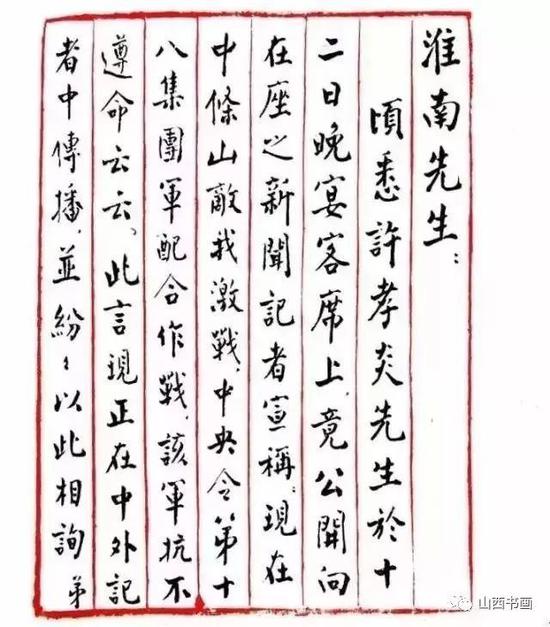 淮南先生：
頃悉許孝炎先生於十
二日晚宴客席上，竟公開向
在座之新聞記者宣稱：現在
中條山敵我激戰，中央令第十
八集團軍配合作戰，該軍抗不
遵命云云。此言現正在中外記
者中傳播，並紛〻以此相詢弟
山西书画